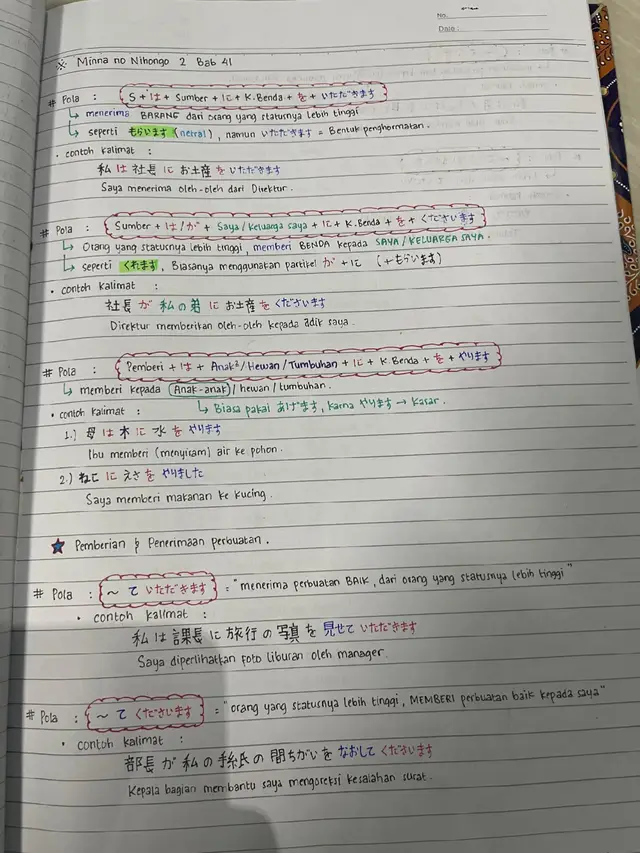 No.
Date :
※ Minna no Nihongo 2 Bab 41
# Pola : S + は + Sumber + に + K.Benda + を + いただきます
↳ menerima BARANG dari orang yang statusnya lebih tinggi
↳ seperti もらいます (netral), namun いただきます = Bentuk penghormatan.
• contoh kalimat :
私 は 社長 に お土産 を いただきます
Saya menerima oleh-oleh dari Direktur.
# Pola : Sumber + は/が + Saya/Keluarga saya + に + K.Benda + を + くださいます
↳ Orang yang statusnya lebih tinggi, memberi BENDA kepada SAYA/KELUARGA SAYA.
↳ seperti くれます, Biasanya menggunakan partikel が + に (↔もらいます)
• contoh kalimat :
社長 が 私 の 弟 に お土産 を くださいます
Direktur memberikan oleh-oleh kepada adik saya.
# Pola : Pemberi + は + Anak²/Hewan/Tumbuhan + に + K.Benda + を + やります
↳ memberi kepada (Anak-anak)/hewan/tumbuhan.
• contoh kalimat : ↳ Biasa pakai あげます, karna やります → Kasar.
1.) 母 は 木 に 水 を やります
Ibu memberi (menyiram) air ke pohon.
2.) ねこ に えさ を やりました
Saya memberi makanan ke kucing.
★ Pemberian & Penerimaan perbuatan.
# Pola : ～ て いただきます = "menerima perbuatan BAIK, dari orang yang statusnya lebih tinggi"
• contoh kalimat :
私 は 課長 に 旅行 の 写真 を 見せて いただきます
Saya diperlihatkan foto liburan oleh manager.
# Pola : ～ て くださいます = "orang yang statusnya lebih tinggi, MEMBERI perbuatan baik kepada saya"
• contoh kalimat :
部長 が 私 の 手紙 の 間ちがい を なおして くださいます
Kepala bagian membantu saya mengoreksi kesalahan surat.